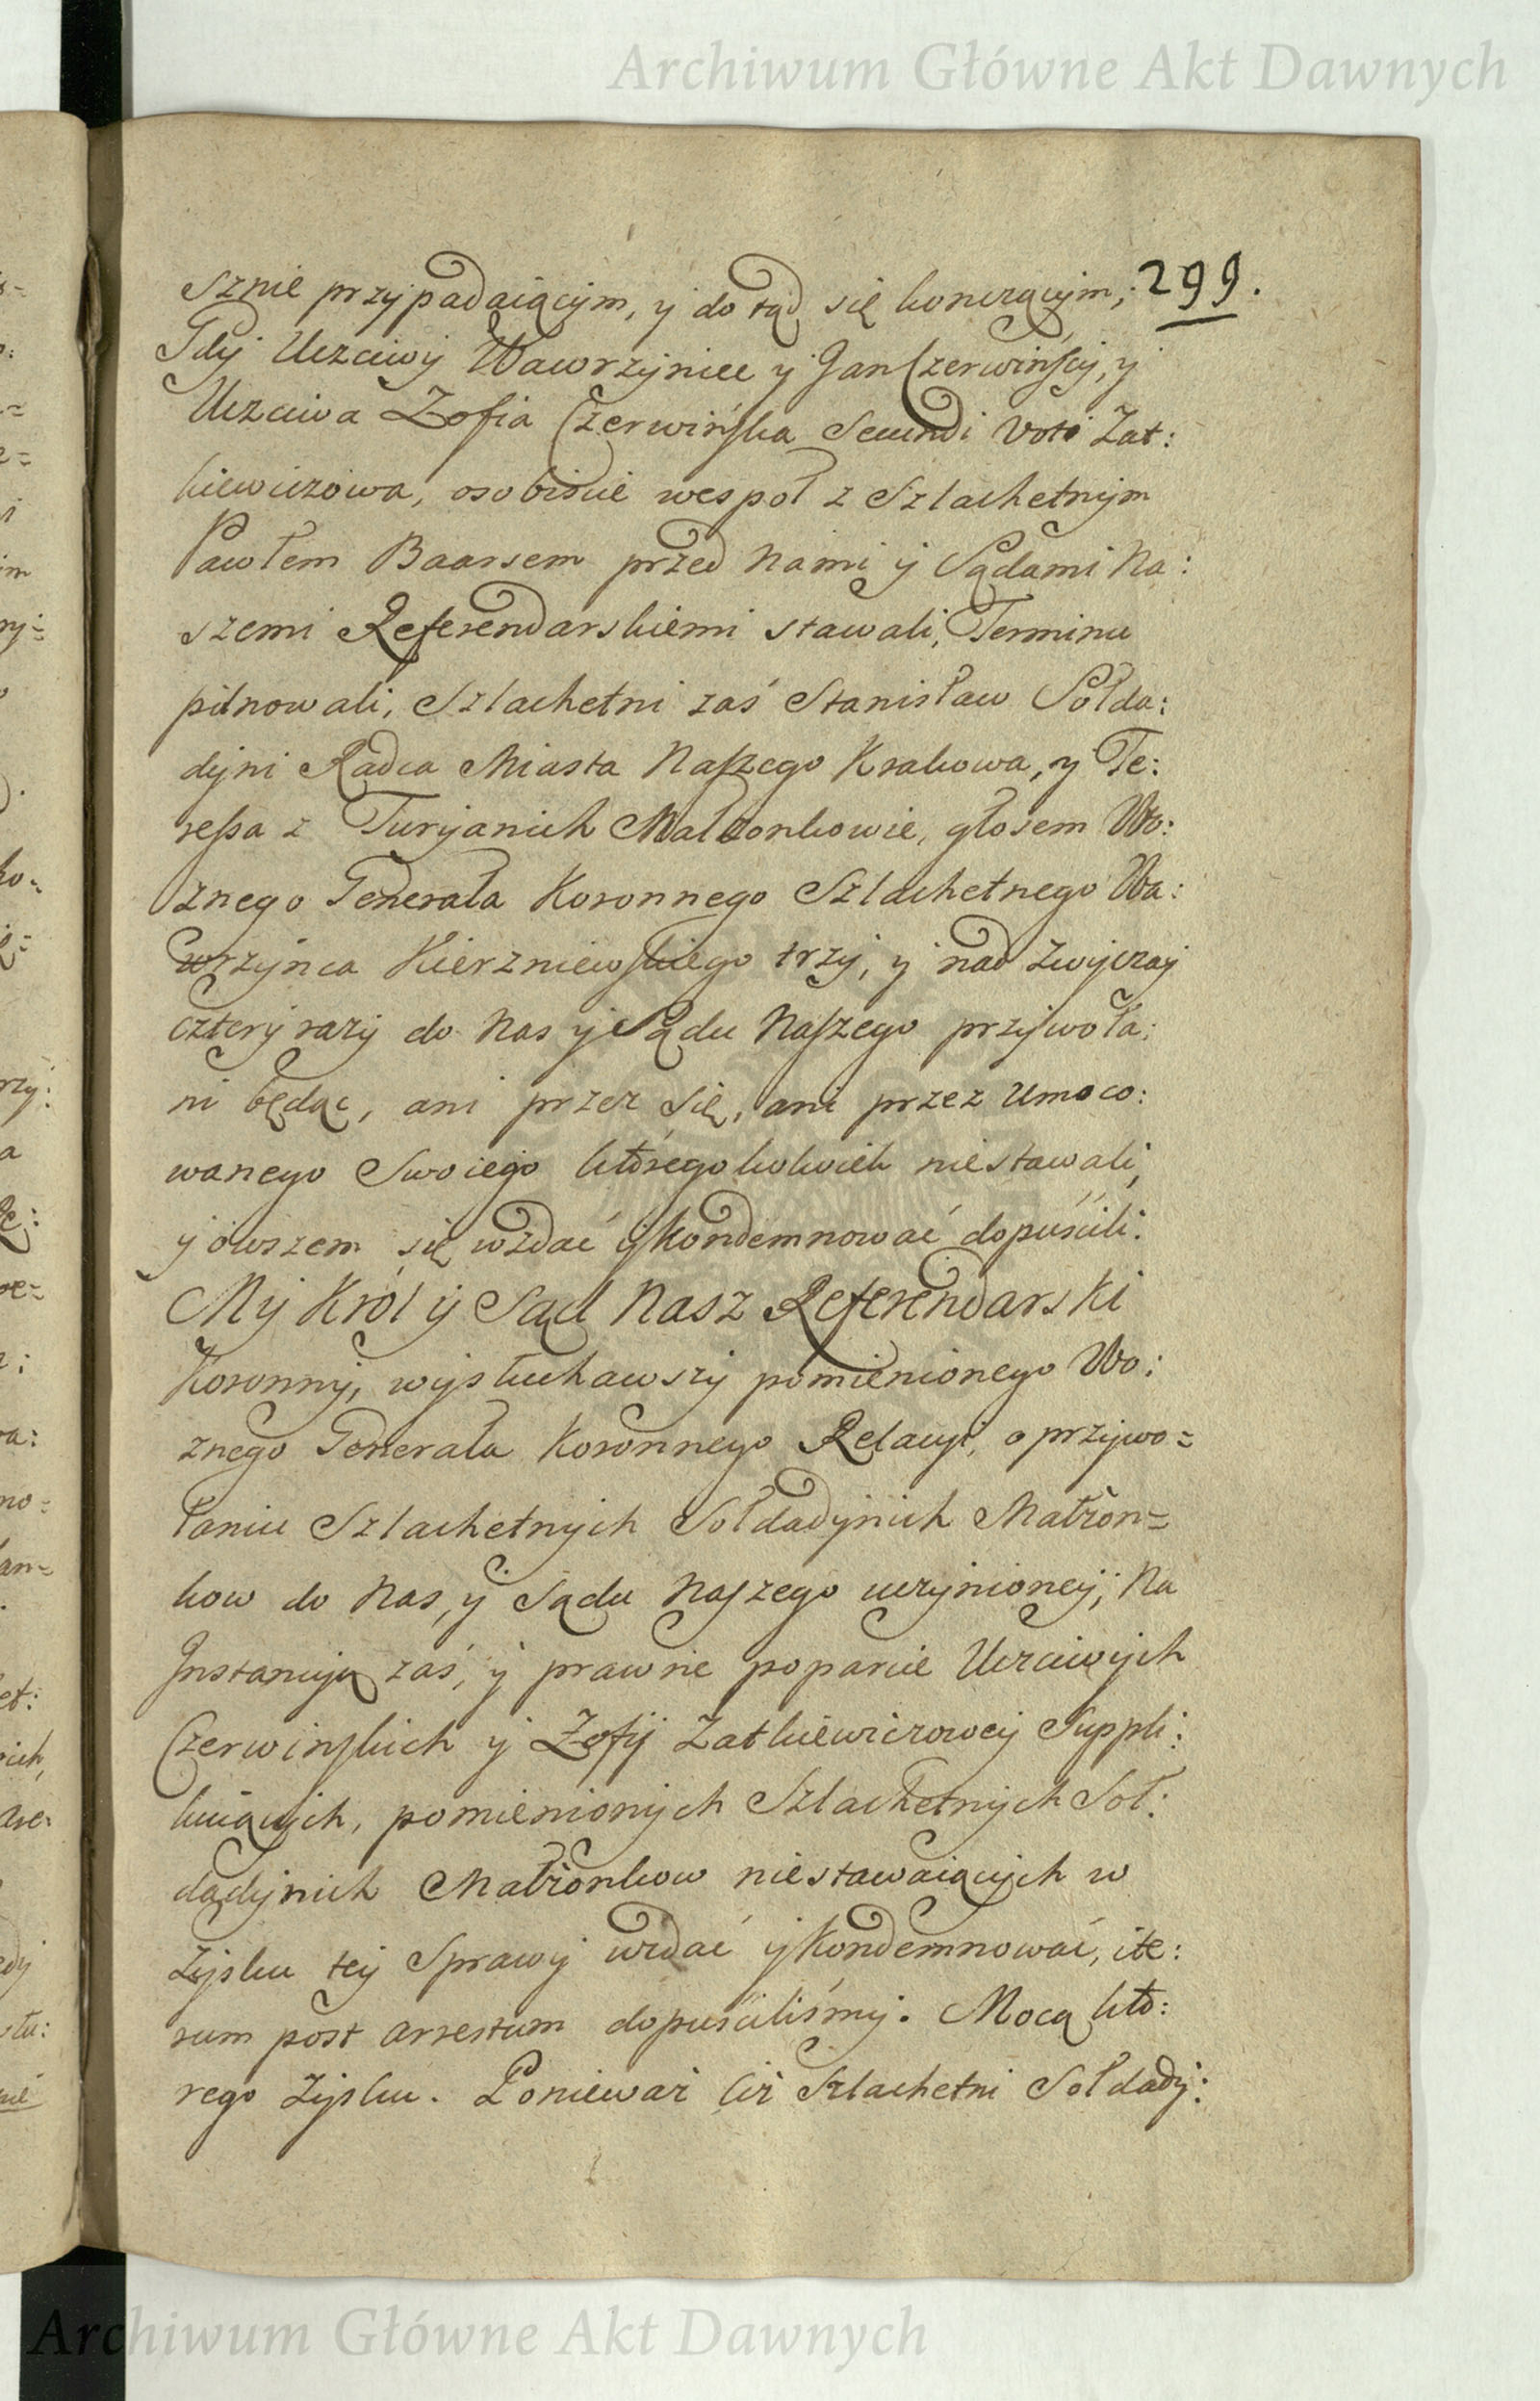 Archiwum Główne Akt Dawnych
299.
sznie przypadaiącym, y do tąd się konczącym;
Gdy Uczciwy Wawrzyniec y Jan Czerwińscy, y
Uczciwa Zofia Czerwińska Secundi Voti Zat:
kiewiczowa, osobiscie wespoł z Szlachetnym
Pawłem Baarsem przed Nami y Sądami Na:
szemi Referendarskiemi stawali, Terminu
pilnowali, Szlachetni zaś Stanisław Sołda:
dyni Radca Miasta Naszego Krakowa, y Te:
ressa z Turyanich Małżonkowie, głosem Wo:
znego Generała Koronnego Szlachetnego Wa:
wrzynca Kierzniewskiego trzy, y nad zwyczay
cztery razy do Nas y Sądu Naszego przywoła:
ni będąc, ani przez się, ani przez Umoco:
wanego Swoiego ktoregokolwiek niestawali,
y owszem się wzdać y kondemnować dopuścili.
My Król y Sąd Nasz Referendarski
Koronny, wysłuchawszy pomienionego Wo:
znego Generała Koronnego Relacyi, o przywo=
łaniu Szlachetnych Sołdadynich Małżon=
kow do Nas, y Sądu Naszego uczynioney; Na
Instancyą zaś, y prawne poparcie Uczciwych
Czerwinskich y Zofij Zatkiewiczowey Suppli:
kuiących, pomienionych Szlachetnych Soł:
dadynich Małżonkow niestawaiących w
Zysku tey Sprawy wzdać y Kondemnować, ite:
rum post arrestum dopuściliśmy. Mocą kto:
rego Zysku. Ponieważ ciż Szlachetni Sołdady:
Archiwum Główne Akt Dawnych